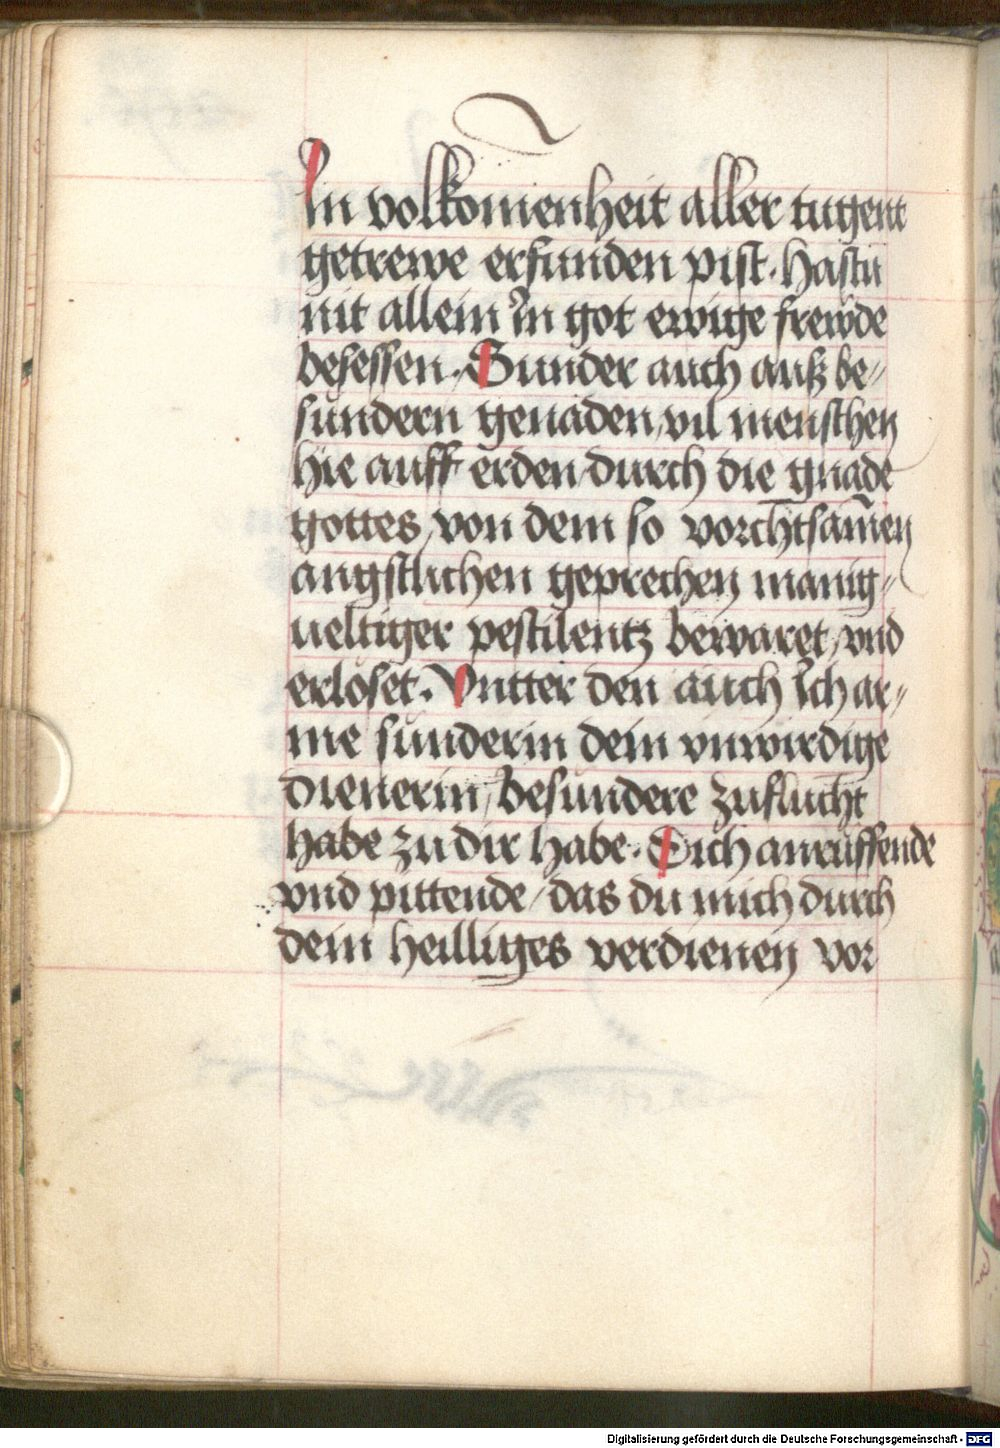 In volkomenheit aller tugent
getrewe erfunden pist. hastu
nit allein In got ewige frewde
besessen. Sunder auch auß be//
sundern genaden, vil menschen
hie auff erden durch die gnade
gottes, von dem so vorchtsamen
angstlichen geprechen manig//
ueltiger pestilentz bewaret, vnd
erloset. Vntter den auch Ich ar//
me sunderin dein vnwirdige
dienerin, besundere zuflucht
habe zu dir habe. Dich anruffende
vnd pittende, das du mich durch
dein heilliges verdienen vor
Digitalisierung gefördert durch die Deutsche Forschungsgemeinschaft - DFG